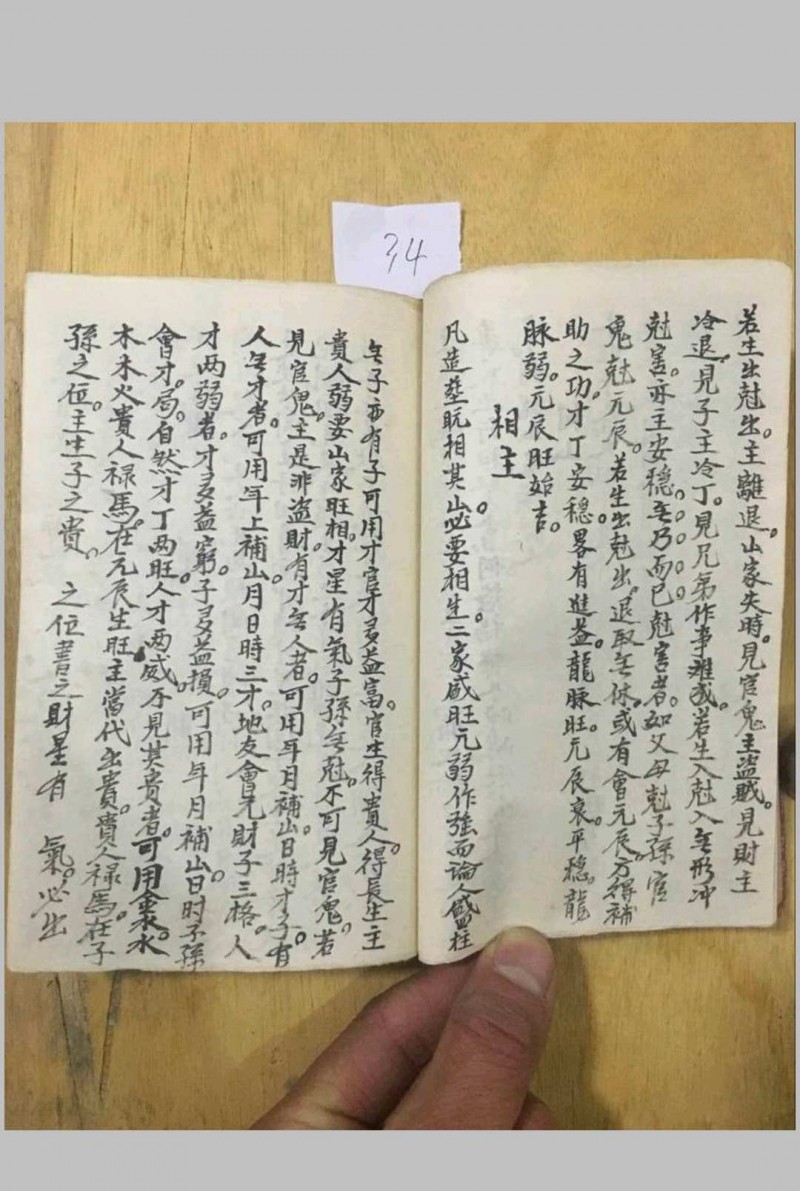 34
若生出尅出。主離退。山家失時。見官鬼主盜賊。見財主
冷退。見子主冷丁。見兄弟作事难成。若生入尅入無形冲
尅害。亦主安穩。無乃而已尅害者。如父母尅子孫官
鬼尅元辰。若生出尅出。退取無休。或有會元辰。方得補
助之功。才丁安穩。畧有進益。龍脉旺。元辰衰。平穩。龍
脉弱。元辰旺始吉。
相主
凡造塟眖相其山。必要相生。二家咸旺元弱作強而論人盤柱
無子而有子可用才官才多益富。官生得貴人。得長生主
貴人弱要山家旺相。才星有氣子孫無尅。不可見官鬼。若
見官鬼。主是非盜財。有才無人者。可用年月補山。日時才子。有
人無才者。可用年上補山。月日時三才。地友會元財子三格。人
才両弱者。才多益窮。子多益損。可用年月補山。日时子孫
會才。局。自然才丁両旺。人才両咸。不見其貴者。可用金水水
木木火貴人禄馬。在元辰生旺。主當代出貴。貴人禄馬。在子
孫之位。主生子之貴。 之位書之財星有 氣。必出